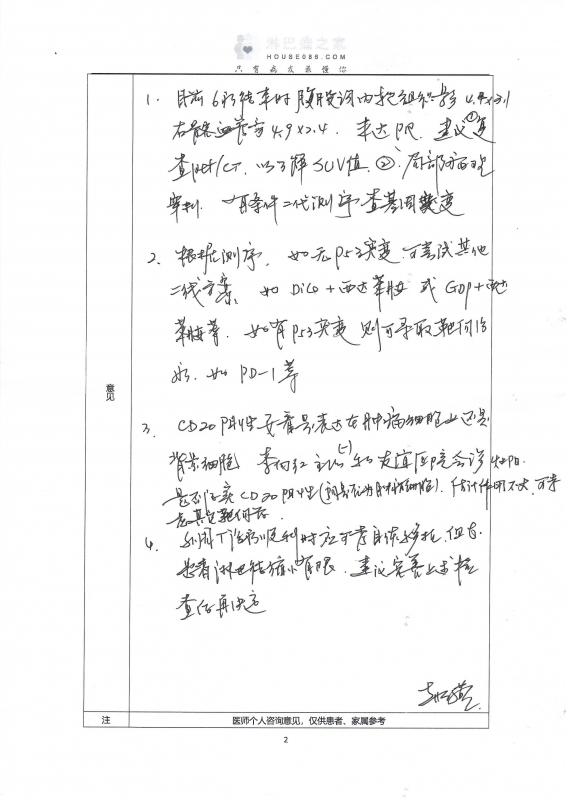 淋巴瘤之家
HOUSE086.COM
只有病友最懂你
意见
1. 目前6疗结束时腹股沟内软组织影4.9×3.1
右髂血管旁4.9×2.4. 未达PR. 建议①复
查PET/CT. 以了解SUV值. ②局部病理
穿刺 有条件二代测序 查基因突变
2. 根据测序. 如无P53突变 可尝试其他
二线方案 如DICE+西达苯胺 或GDP+西达
苯胺等. 如有P53突变 则可采取靶向治
疗. 如PD-1等
3. CD20阳性 要看是表达在肿瘤细胞上还是
背景细胞 (-) 友谊医院会诊
是否证实CD20阳性 估计作用不大, 可考
虑其它靶向药
4. 外周T治疗顺利时应可考虑自体移植, 但
患者淋巴结缩小有限. 建议完善上述检
查后再决定
注
医师个人咨询意见，仅供患者、家属参考
2